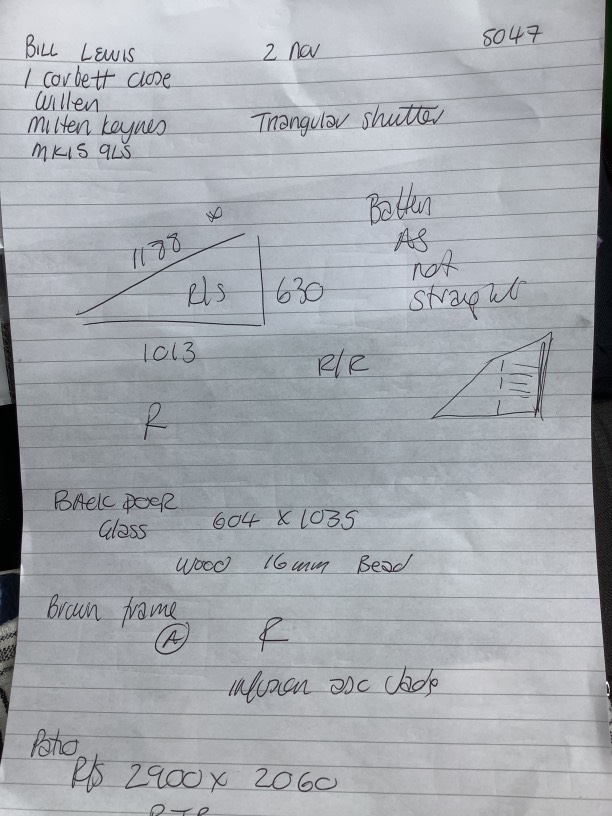 Bill Lewis 2 Nov 5047
1 corbett close
Willen
Milten Keynes
MK15 9LS
Triangular shutter
1188
R/s
630
1013
Batten
As
not
straight
R/R
R
Back Door
Glass 604 x 1035
Wood 16mm Bead
Brown frame
A R
Patio
R/s 2900 x 2060